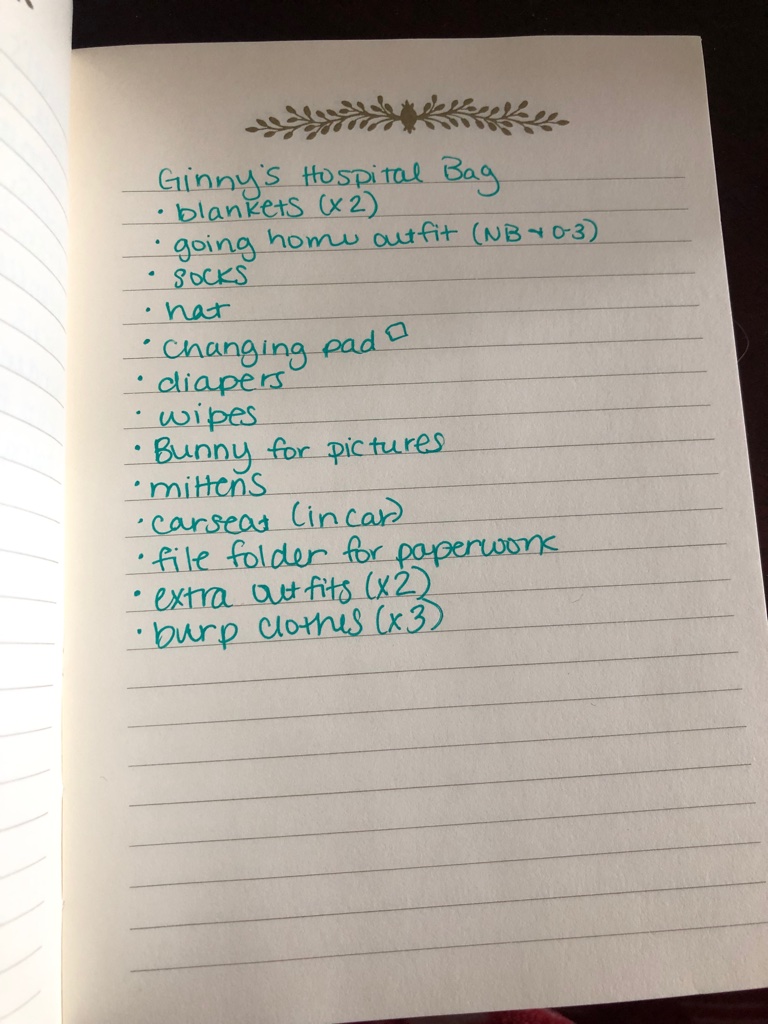 Ginny's Hospital Bag
• blankets (x2)
• going home outfit (NB + 0-3)
• socks
• hat
• changing pad
• diapers
• wipes
• Bunny for pictures
• mittens
• carseat (in car)
• file folder for paperwork
• extra outfits (x2)
• burp clothes (x3)